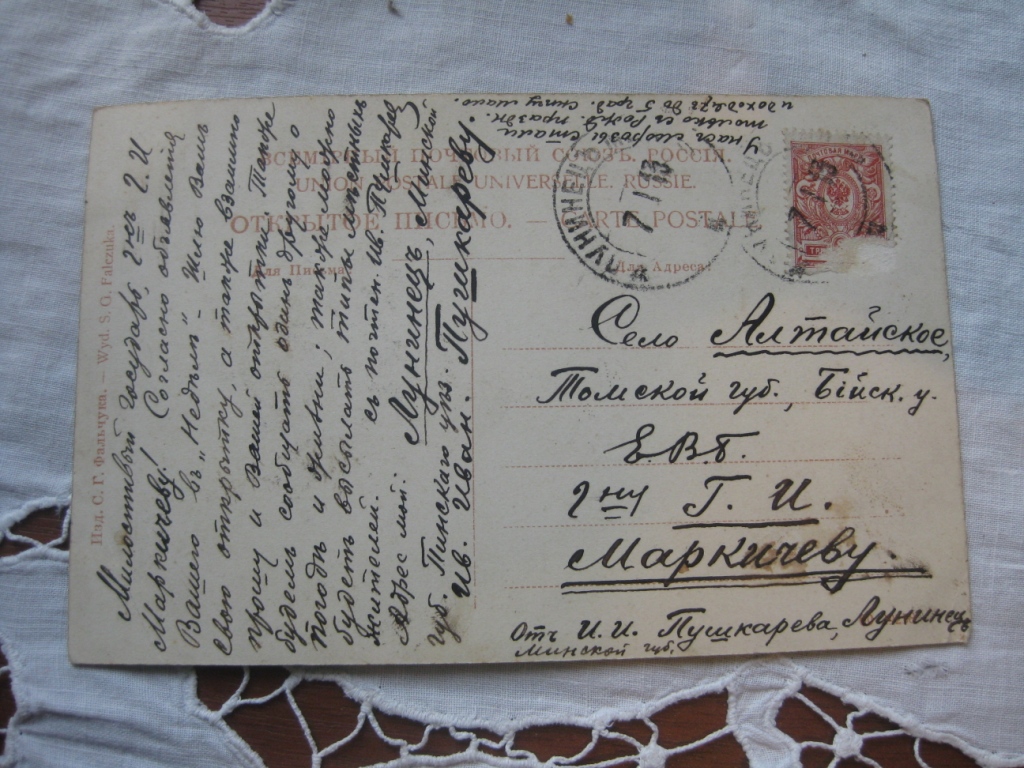 ВСЕМІРНЫЙ ПОЧТОВЫЙ СОЮЗЪ. РОССІЯ.
UNION POSTALE UNIVERSELLE. RUSSIE.
ОТКРЫТОЕ ПИСЬМО. — CARTE POSTALE
Для Письма.
Для Адреса.
Изд. С. Г. Фальчука. — Wyd. S. G. Falczuka.
Милостивый государь, г-нъ Г. И
Маркичеву! Согласно объявленія
Вашего въ „Недѣлѣ" - шлю Вамъ
свою открытку, а также взаимно
прошу и Вашей отвѣтить. Также
будемъ сообщать одинъ другому о
погодѣ и уровни; также можно
будетъ высылать типы мѣстныхъ
жителей. Съ почтен. Ив. Пушкарев
Адрес мой: Лунинецъ, Минской
губ. Пинскаго уѣз.
Ив. Иван. Пушкареву.
У насъ морозы стали
только съ Рожд. празд.
и доходятъ до 5 град. Снѣгу мало.
ЛУНИНЕЦЪ
7 1 13
7 1 13
Село Алтайское,
Томской губ., Бійск. у.
Е.В.Б.
г-ну Г. И.
Маркичеву.
Отъ И. И. Пушкарева, Лунинецъ
Минской губ.